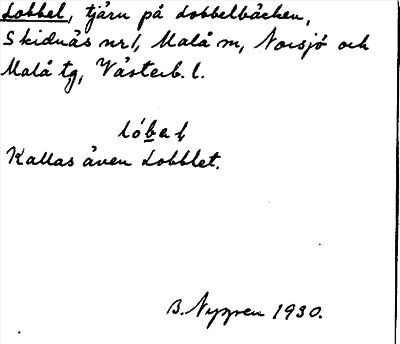 Lobbel, tjärn på Lobbelbäcken,
Skidnäs nr 1, Malå sn, Norsjö och
Malå tg, Västerb. l.
Kallas även Lobblet.
B. Nygren 1930.